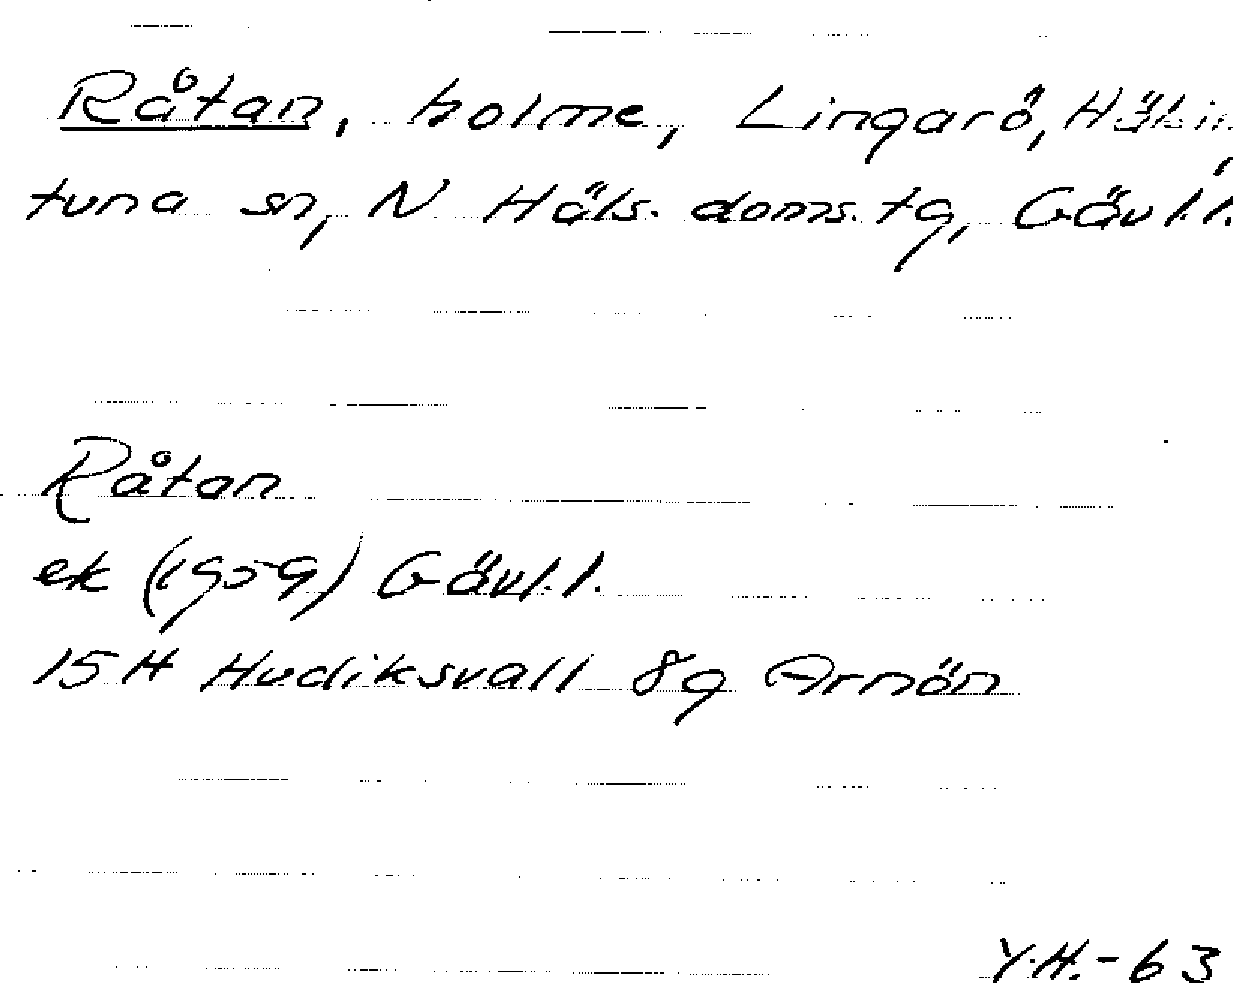 Råtan, holme, Lingarö, Hälsin,
tuna sn, N Häls. doms. tg, Gävl.l.
Råtan
ek (1959) Gävl.l.
15H Hudiksvall 8g Arnön
Y.H.-63